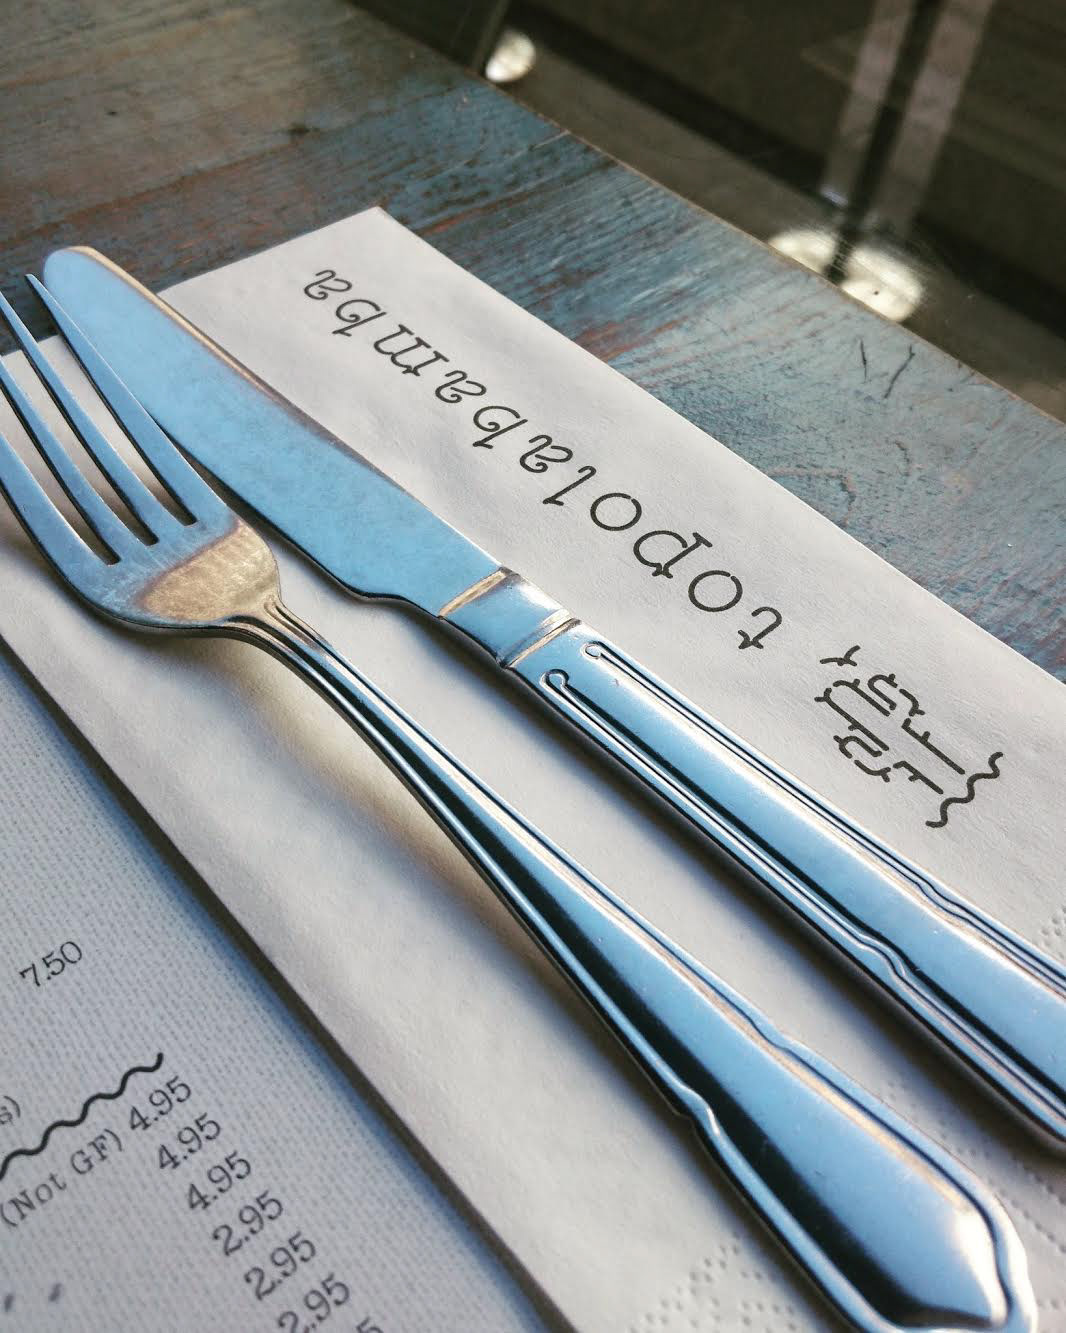 topolabamba
7.50
s)
(Not GF) 4.95
4.95
4.95
2.95
2.95
2.95
5